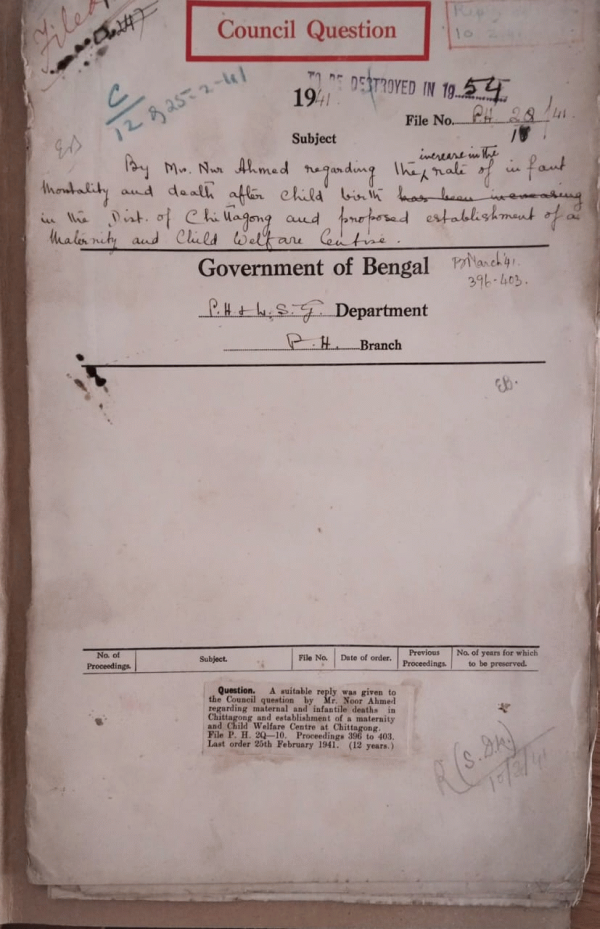 Filed
Council Question
10.2.
C
12 & 25-2-41
TO BE DESTROYED IN 1954
1941
File No. P.H. 2Q/41
10
Subject
EB
increase in the
By Mr. Nur Ahmed regarding the rate of infant
Mortality and death after child birth has been increasing
in the Dist. of Chittagong and proposed establishment of a
Maternity and Child Welfare Centre.
Government of Bengal
B March 41.
396-403.
P.H & L.S.G. Department
P.H. Branch
EB.
No. of Proceedings. Subject. File No. Date of order. Previous Proceedings. No. of years for which to be preserved.
Question. A suitable reply was given to
the Council question by Mr. Noor Ahmed
regarding maternal and infantile deaths in
Chittagong and establishment of a maternity
and Child Welfare Centre at Chittagong.
File P. H. 2Q—10. Proceedings 396 to 403.
Last order 25th February 1941. (12 years.)
R